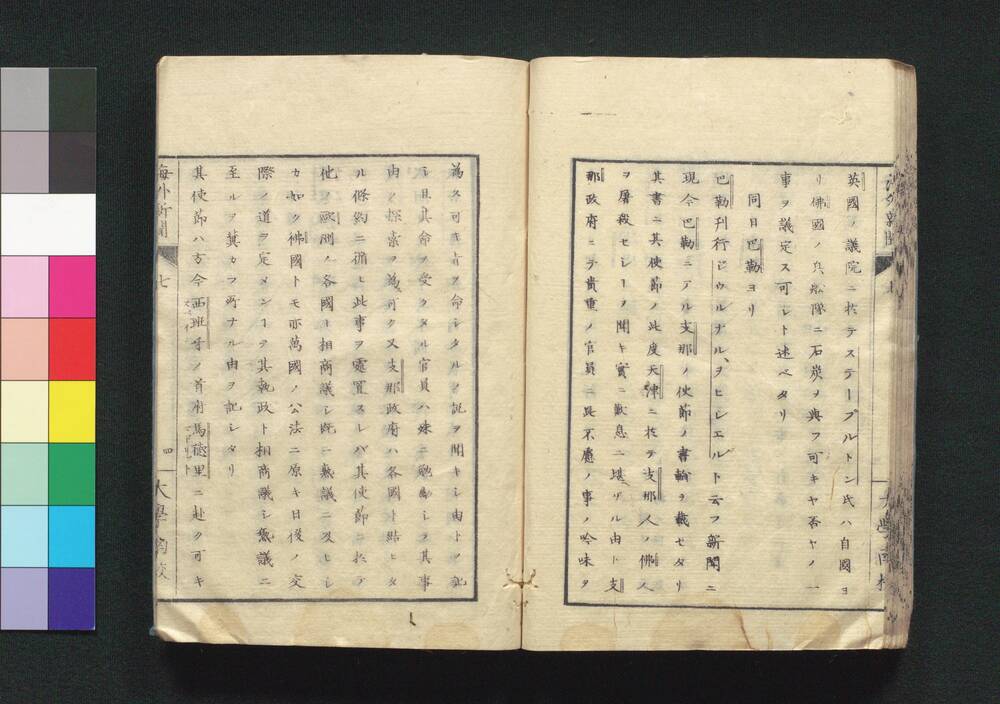 英國ノ議院ニ於テステープルトン氏ハ自國ヨ
リ佛國ノ兵船隊ニ石炭ヲ與フ可キヤ否ヤノ一
事ヲ議定ス可シト述ベタリ
同日巴勒ヨリ
巴勒刊行ジウルナル、ヲヒシエルト云フ新聞ニ
現今巴勒ニアル支那ノ使節ノ書輸ヲ載セタリ
其書ニ其使節ノ此度天津ニ於テ支那人ノ佛人
ヲ屠殺セシーヲ聞キ實ニ歎息ニ堪ザル由ト支
那政府ニテ貴重ノ官員ニ此不慮ノ事ノ吟味ヲ
為ス可キ旨ヲ命シタルノ説ヲ聞キシ由トヲ記
シ且其命ヲ受ケタル官員ハ殊ニ勉勵シテ其事
由ヲ探索ヲ為ス可ク又支那政府ハ各國ト結ヒタ
ル條約ニ循ヒ此事ヲ處置スレバ其使節ニ於テ
他ノ歐洲ノ各國ト相商議シ既ニ熟議ニ及ヒシ
カ如ク佛國トモ亦萬國ノ公法ニ原キ日後ノ交
際ノ道ヲ定メンーヲ其執政ト相商議シ熟議ニ
至ルヲ冀カフ所ナル由ヲ記シタリ
其使節ハ方今西班牙ノ首府馬德里ニ赴ク可キ
海外新聞 七 四 大學南校